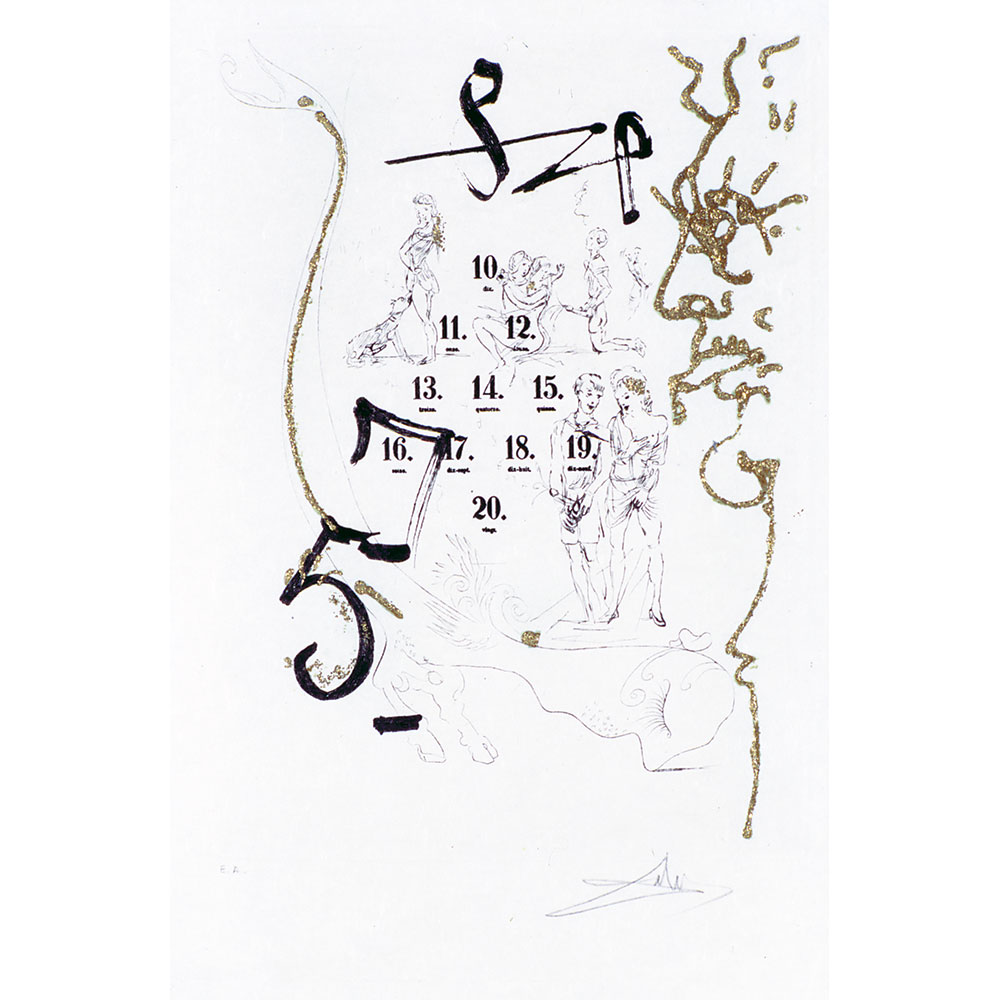 10.
dix.
11. 12.
onze. douze.
13. 14. 15.
treize. quatorze. quinze.
16. 17. 18. 19.
seize. dix-sept. dix-huit. dix-neuf.
20.
vingt.
5
E.A.